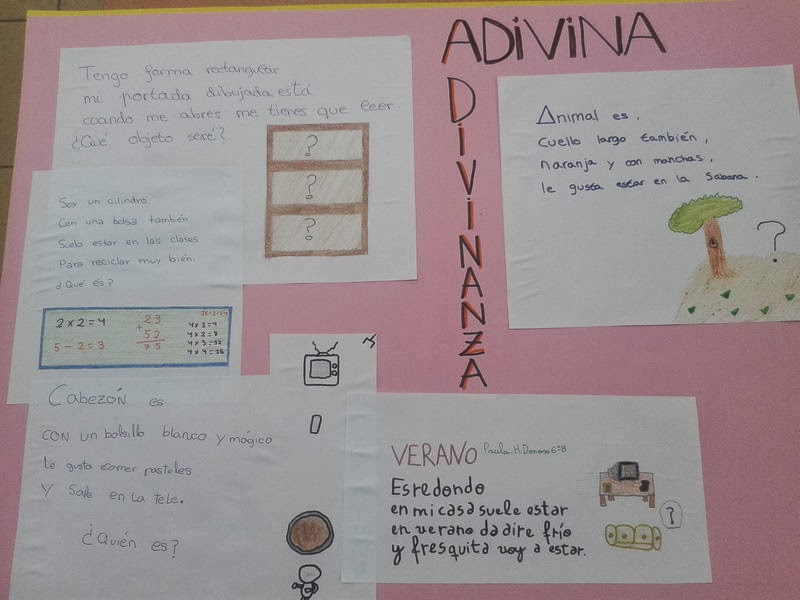 ADIVINA
ADIVINANZA
Tengo forma rectangular
mi portada dibujada está
cuando me abres me tienes que leer.
¿Qué objeto seré?
?
?
?
Animal es,
cuello largo también,
naranja y con manchas,
le gusta estar en la Sabana.
?
Soy un cilindro
Con una bolsa también
Suelo estar en las clases
Para reciclar muy bien.
¿Qué és?
2x2=4
5-2=3
23
+
52
75
4x1=4
4x2=8
4x3=12
4x4=16
Cabezón es
CON un bolsillo blanco y mágico
le gusta comer pasteles
Y Sale en La tele.
¿Quién es?
VERANO Paula.H.Donoso 6ºB
Es redondo
en mi casa suele estar
en verano da aire frío
y fresquita voy a estar.
?